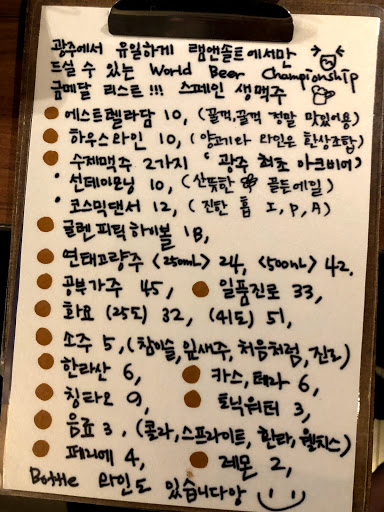 광주에서 유일하게 램앤솔트에서만
드실 수 있는 World Beer Championship
금메달 리스트!!! 스페인 생맥주
에스트렐라담 10, (꿀꺽,꿀꺽 정말 맛있어용)
하우스와인 10, (양과와 와인은 환상조합)
수제맥주 2가지 ' 광주 최초 아크비어'
· 선데이모닝 10, (산뜻한 골든에일)
· 코스믹댄서 12, (진한 홉 I, P, A)
글렌피딕하이볼 18,
연태고량주 <250ml> 24, <500ml> 42.
공부가주 45, 일품진로 33,
화요 (25도) 32, (41도) 51,
소주 5, (참이슬, 잎새주, 처음처럼, 진로)
한라산 6, 카스, 테라 6,
칭타오 9, 토닉워터 3,
음료 3, (콜라, 스프라이트, 환타, 웰치스)
페리에 4, 레몬 2,
Bottle 와인도 있습니다앙